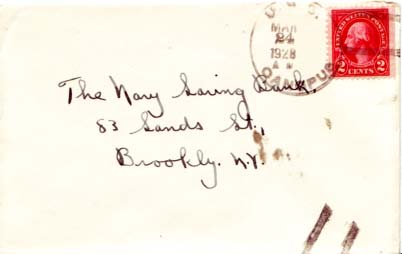 U. S.
MAR
24
1928
A M
CAMPUS
UNITED STATES POSTAGE
2 CENTS 2
The Navy Saving Bank,
83 Sands St.,
Brookly. N.Y.